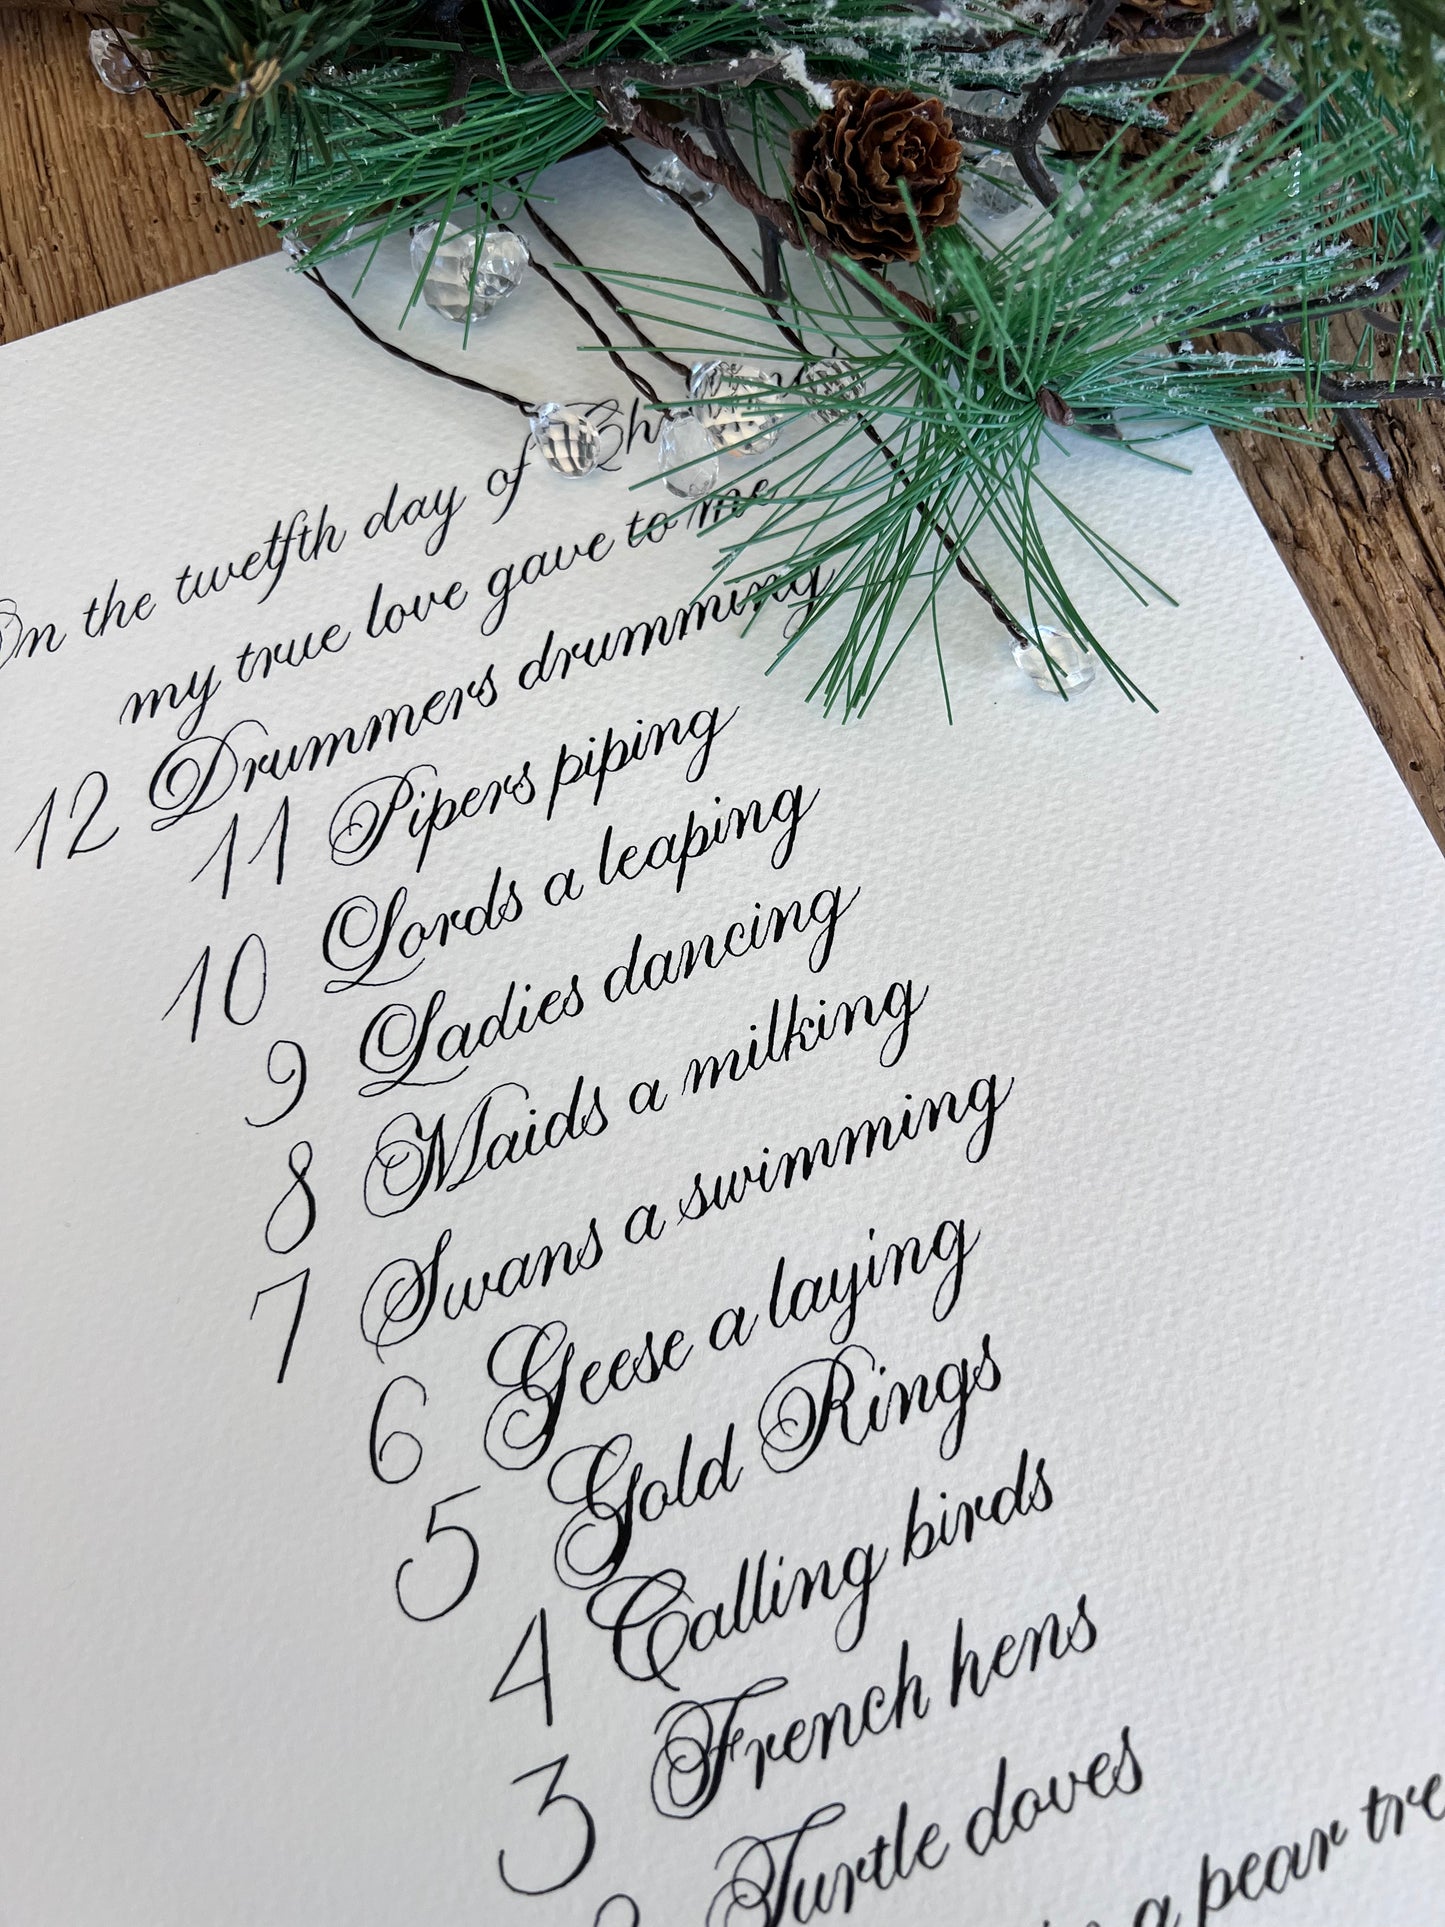 On the twelfth day of
my true love gave to me
12 Drummers drumming
11 Pipers piping
10 Lords a leaping
9 Ladies dancing
8 Maids a milking
7 Swans a swimming
6 Geese a laying
5 Gold Rings
4 Calling birds
3 French hens
Turtle doves
a pear